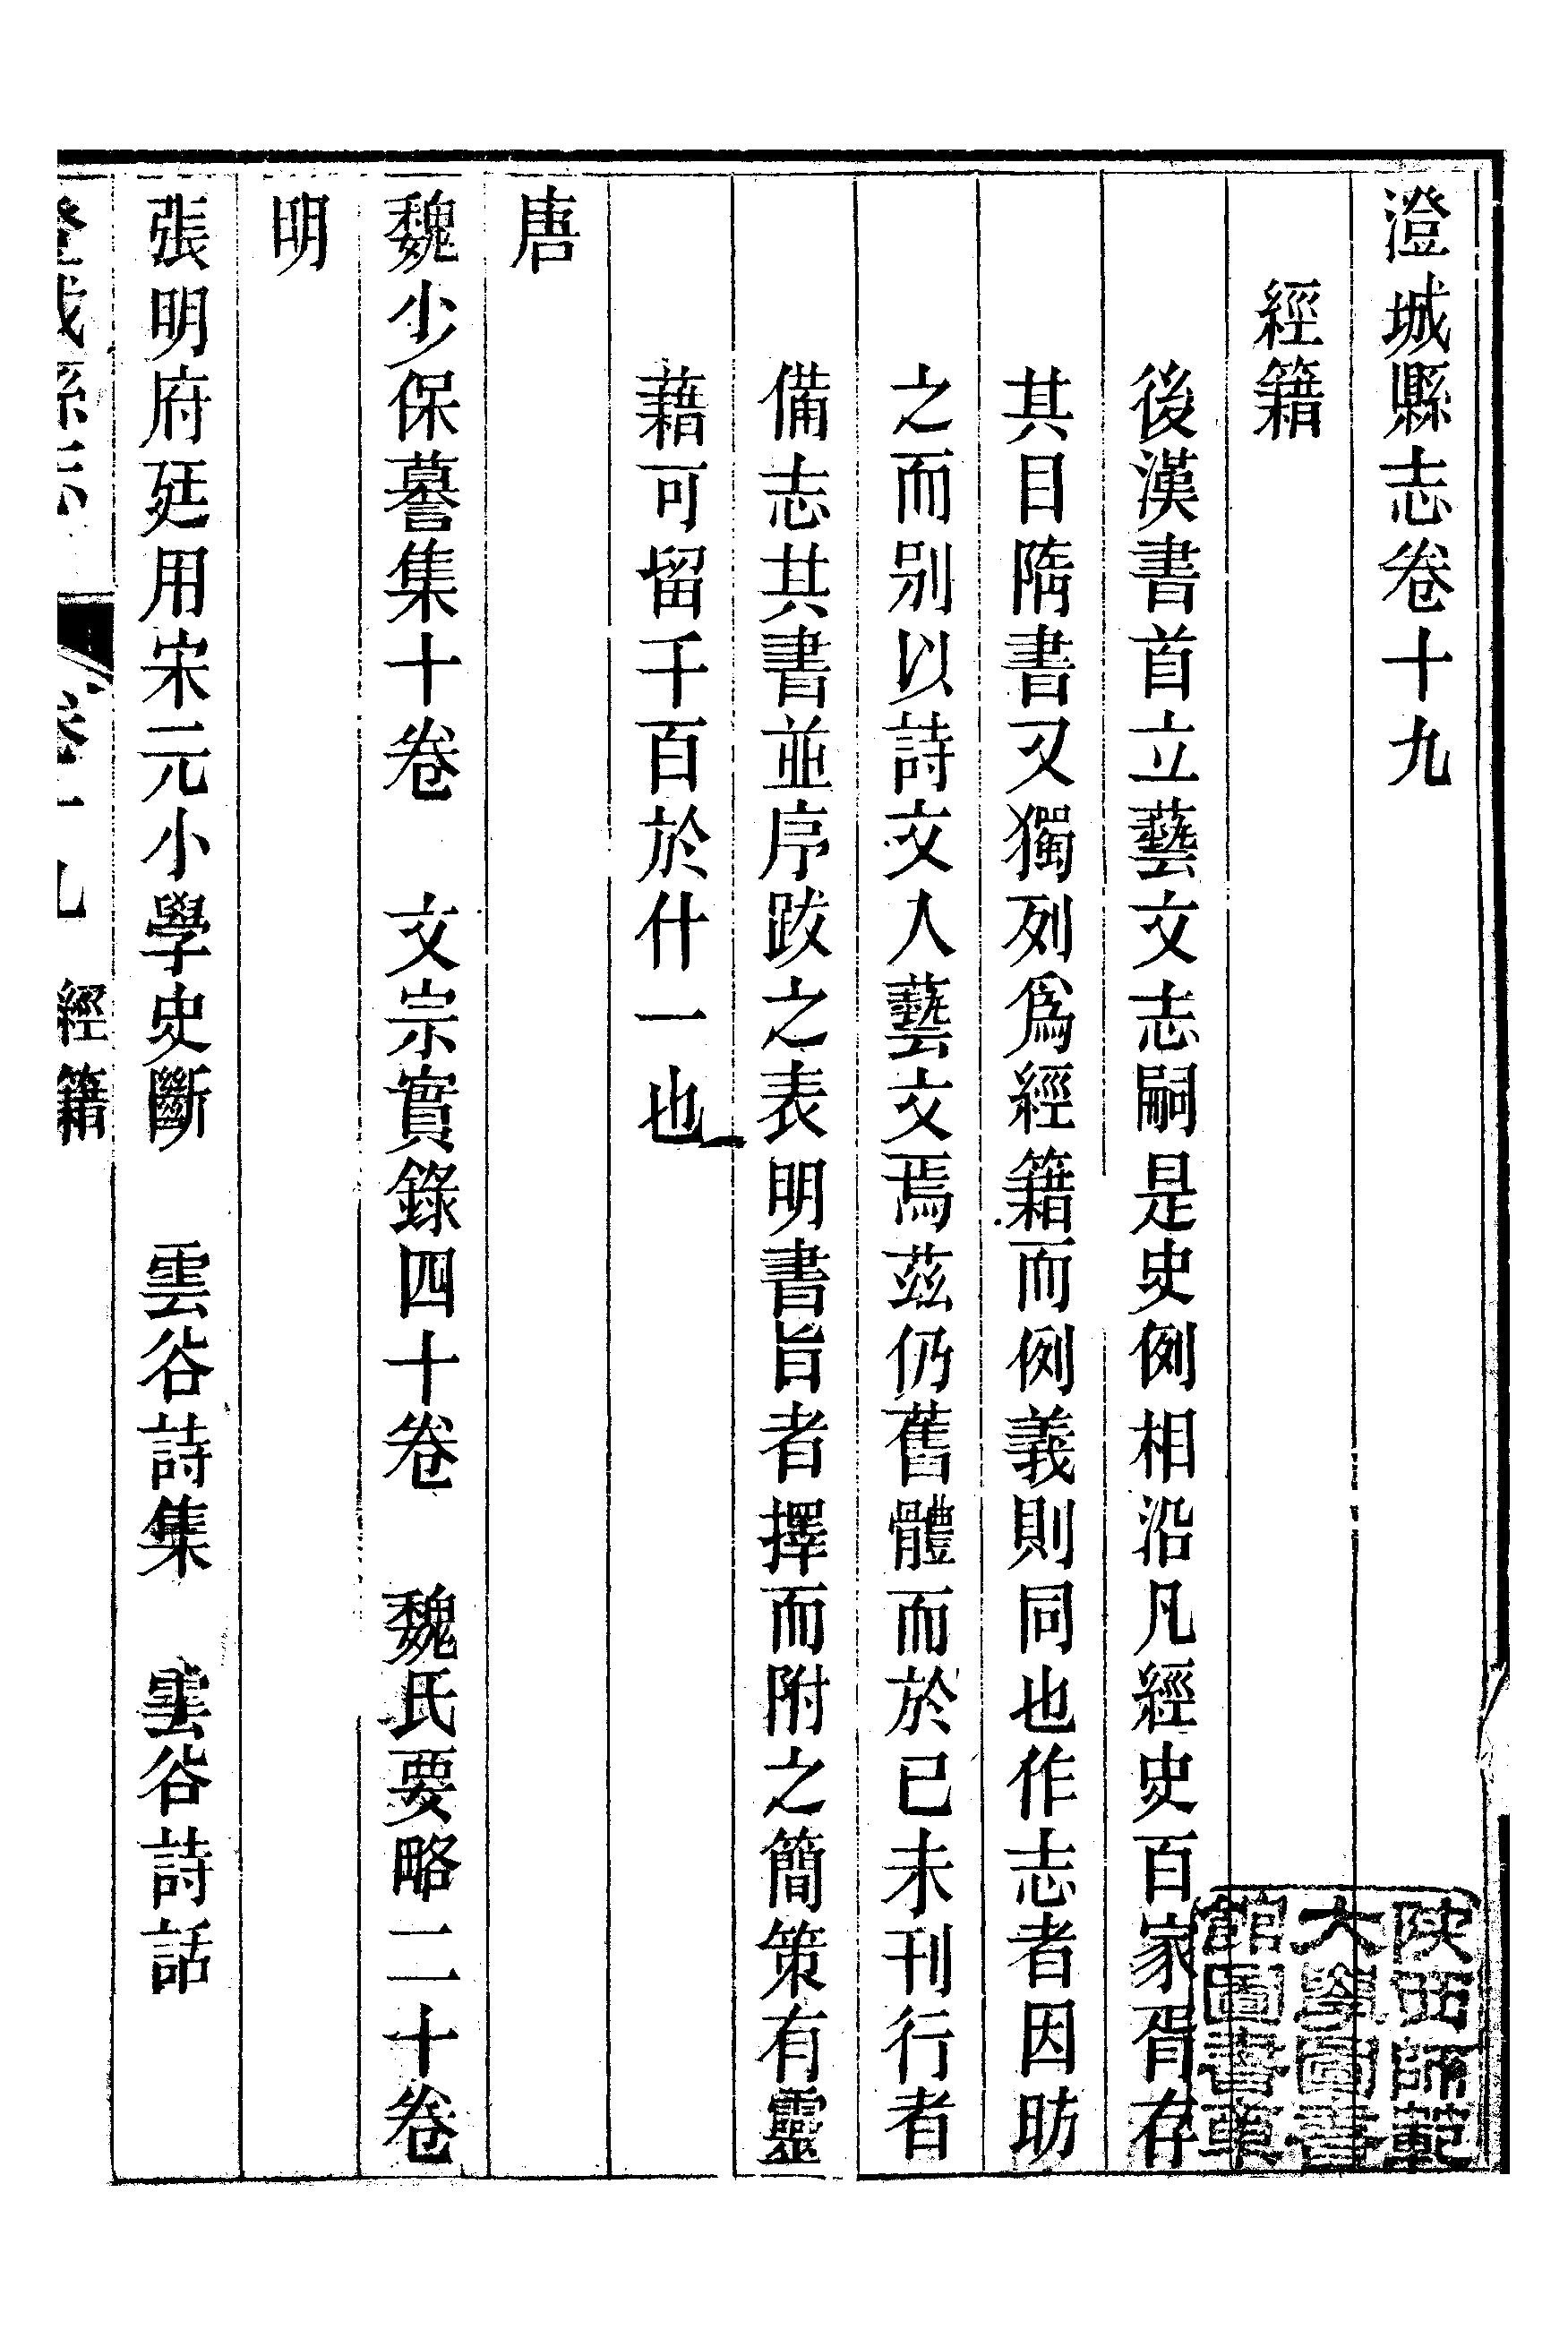 澄城縣志卷十九
經籍
後漢書首立藝文志嗣是史例相沿凡經史百家胥存
其目隋書又獨列爲經籍而例義則同也作志者因昉
之而别以詩文人藝文焉茲仍舊體而於已未刊行者
備志其書並序跋之表明書旨者擇而附之簡策有靈
藉可留千百於什一也
唐
魏少保謩集十卷　文宗實錄四十卷　魏氏要略二十卷
明
張明府廷用宋元小學史斷　雲谷詩集　雲谷詩話
澄城縣志　卷十九　經籍
陝西師範
大學圖書
館圖書章